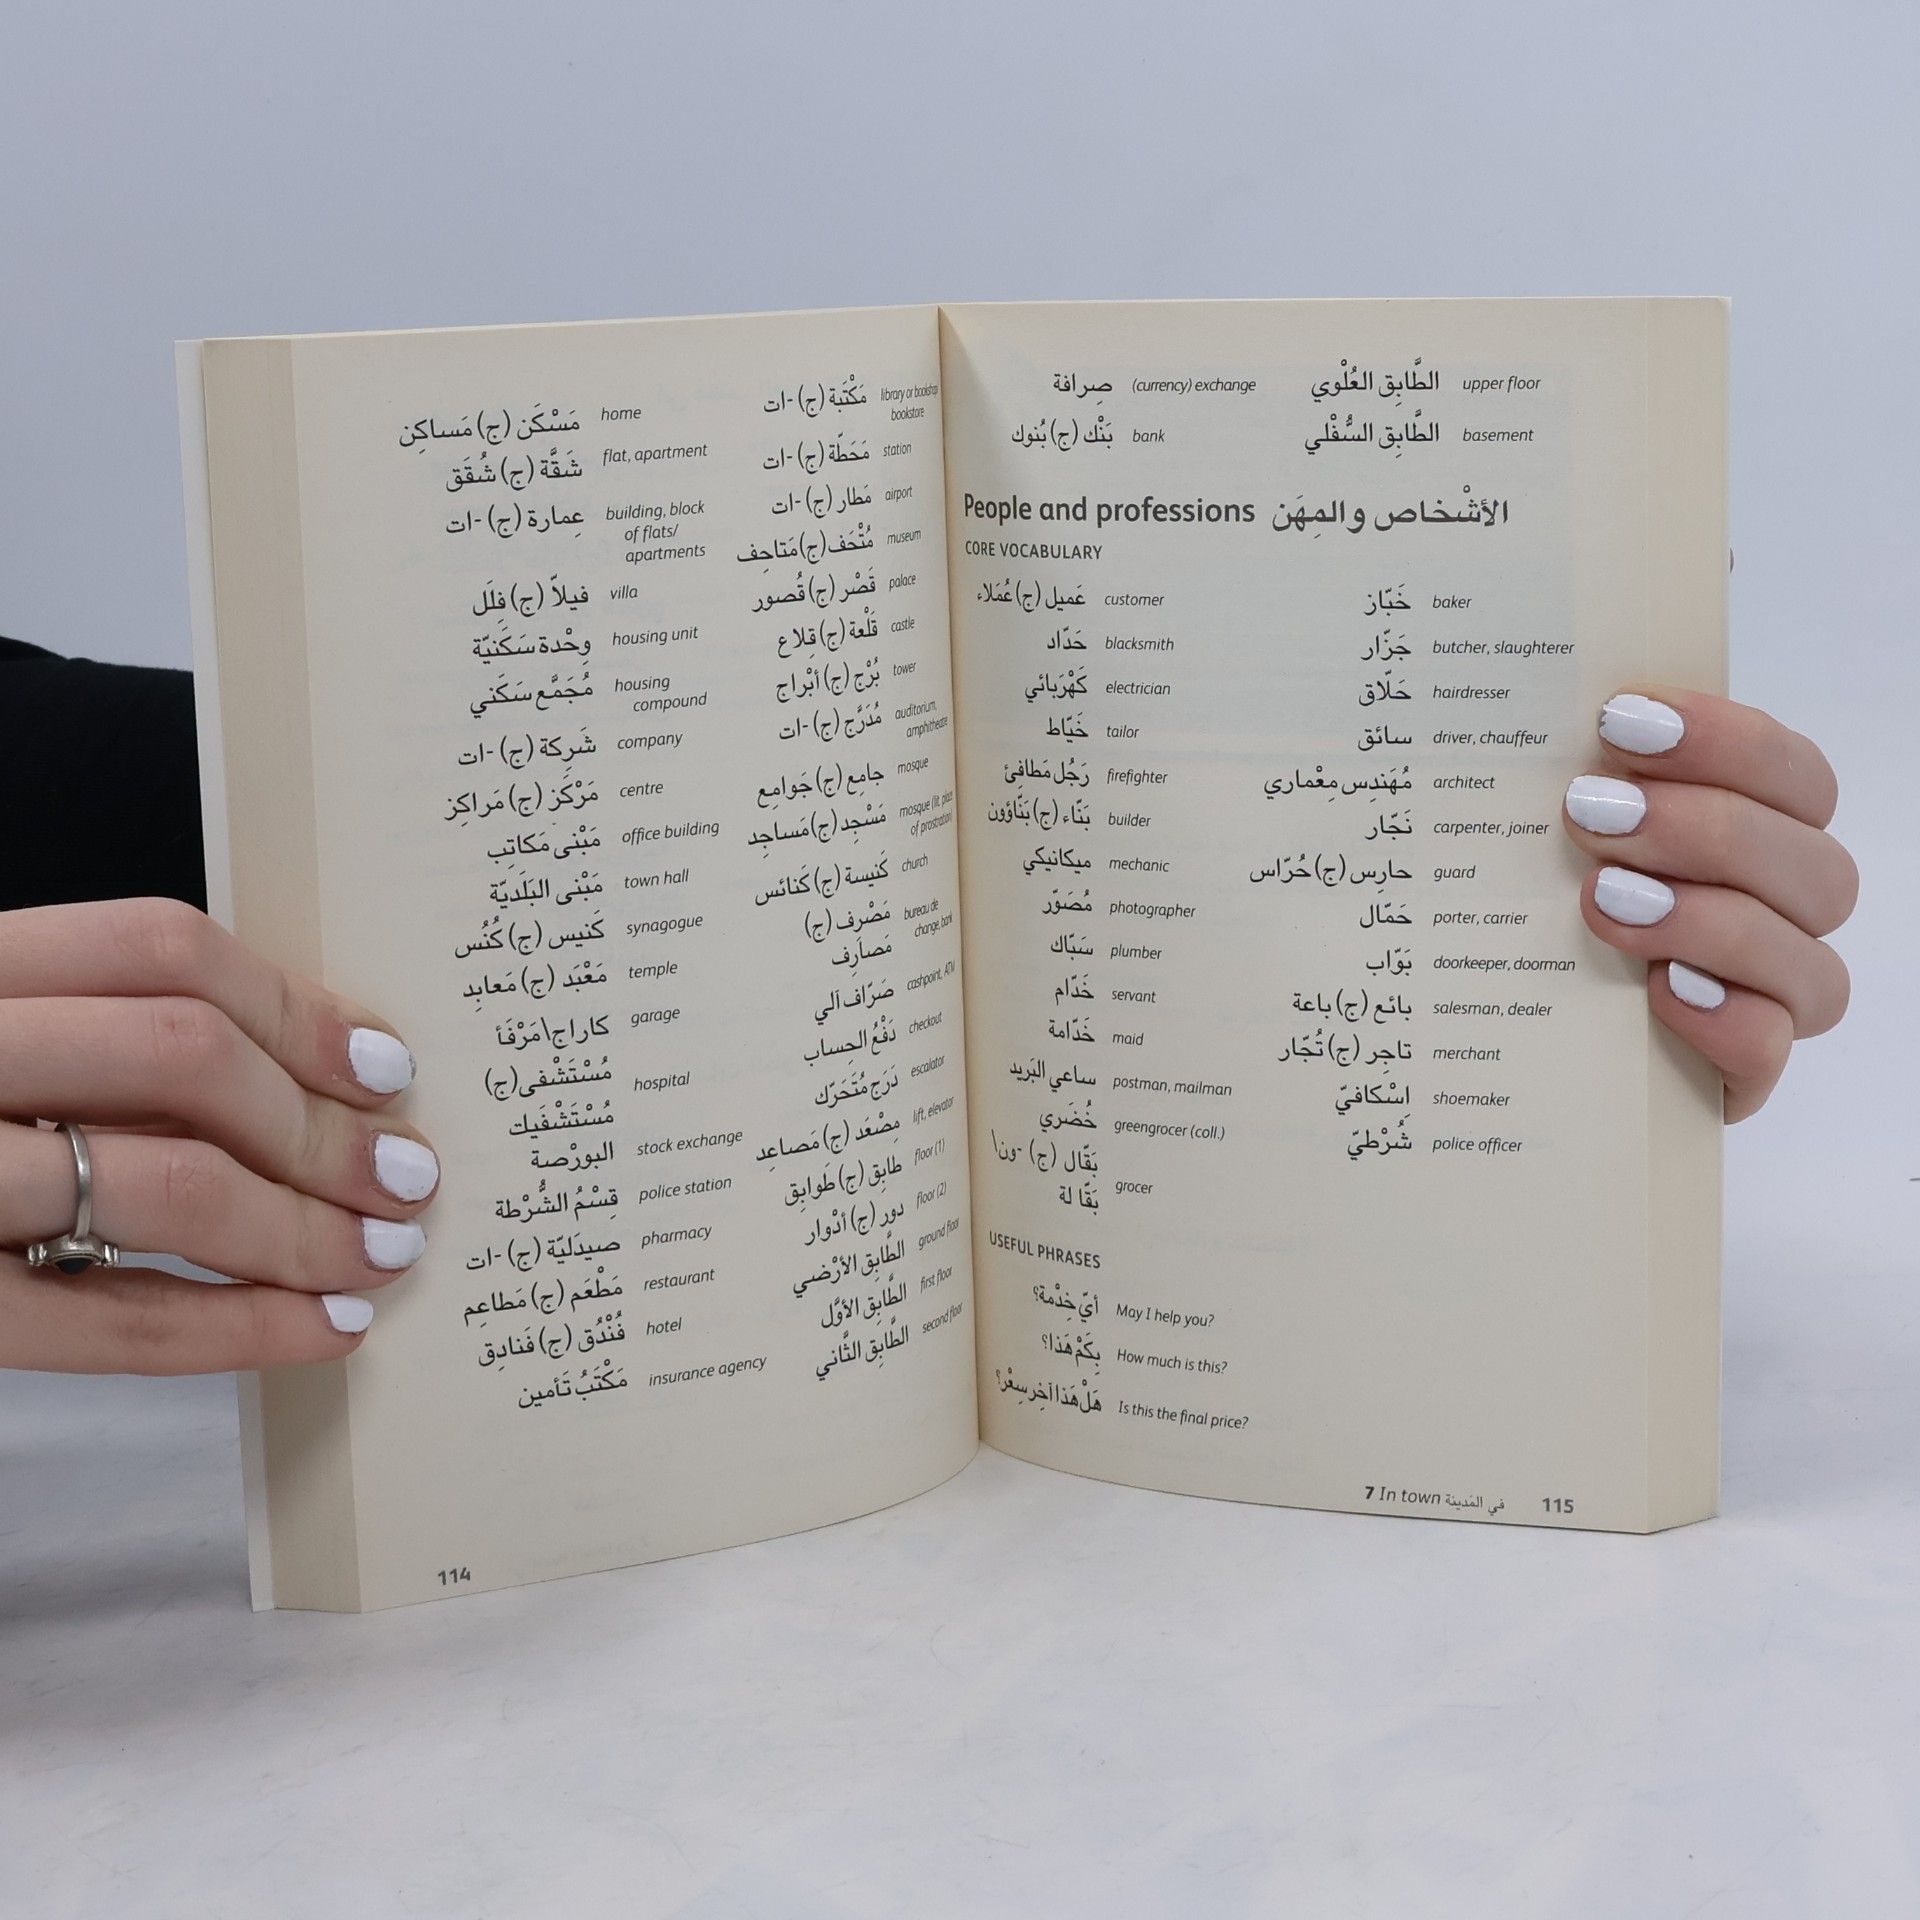 مَسْكَن (ج) مَساكِن home
شَقَّة (ج) شُقَق flat, apartment
عِمارة (ج) -ات building, block
of flats/
apartments
فيلاّ (ج) فِلَل villa
وِحْدة سَكَنيّة housing unit
مُجَمَّع سَكَني housing
compound
شَرِكة (ج) -ات company
مَرْكَز (ج) مَراكِز centre
مَبْنى مَكاتِب office building
مَبْنى البَلَديّة town hall
كَنيس (ج) كُنُس synagogue
مَعْبَد (ج) مَعابِد temple
كاراج\مَرْفَأ garage
مُسْتَشْفى (ج) hospital
مُسْتَشْفَيك
البورْصة stock exchange
قِسْمُ الشُّرْطة police station
صيدَليّة (ج) -ات pharmacy
مَطْعَم (ج) مَطاعِم restaurant
فُنْدُق (ج) فَنادِق hotel
مَكْتَبُ تَأمين insurance agency
مَكْتَبة (ج) -ات library or bookshop
bookstore
مَحَطّة (ج) -ات station
مَطار (ج) -ات airport
مُتْحَف (ج) مَتاحِف museum
قَصْر (ج) قُصور palace
قَلْعة (ج) قِلاع castle
بُرْج (ج) أبْراج tower
مُدَرَّج (ج) -ات auditorium,
amphitheatre
جامِع (ج) جَوامِع mosque
مَسْجِد (ج) مَساجِد mosque (lit. place
of prostration)
كَنيسة (ج) كَنائس church
مَصْرِف (ج) bureau de
مَصارِف change, bank
صَرّاف آلي cashpoint, ATM
دَفْعُ الحِساب checkout
دَرَج مُتَحَرّك escalator
مِصْعَد (ج) مَصاعِد lift, elevator
طابِق (ج) طَوابِق floor (1)
دور (ج) أدْوار floor (2)
الطَّابِق الأرْضي ground floor
الطَّابِق الأوَّل first floor
الطَّابِق الثَّاني second floor
114
صِرافة (currency) exchange
بَنْك (ج) بُنوك bank
الطَّابِق العُلْوي upper floor
الطَّابِق السُّفْلي basement
People and professions الأشْخاص والمِهَن
CORE VOCABULARY
عَميل (ج) عُمَلاء customer
حَدّاد blacksmith
كَهْرَبائي electrician
خَيّاط tailor
رَجُل مَطافِئ firefighter
بَنّاء (ج) بَنّاؤون builder
ميكانيكي mechanic
مُصَوّر photographer
سَبّاك plumber
خَدّام servant
خَدّامة maid
ساعي البَريد postman, mailman
خُضَري greengrocer (coll.)
بَقّال (ج) -ون\
بَقّا لة grocer
خَبّاز baker
جَزّار butcher, slaughterer
حَلّاق hairdresser
سائق driver, chauffeur
مُهَندِس مِعْماري architect
نَجّار carpenter, joiner
حارِس (ج) حُرّاس guard
حَمّال porter, carrier
بَوّاب doorkeeper, doorman
بائع (ج) باعة salesman, dealer
تاجِر (ج) تُجّار merchant
اِسْكافيّ shoemaker
شُرْطيّ police officer
USEFUL PHRASES
أيّ خِدْمة؟ May I help you?
بِكَمْ هَذا؟ How much is this?
هَلْ هَذا آخِر سِعْر؟ Is this the final price?
7 In town في المَدينة 115